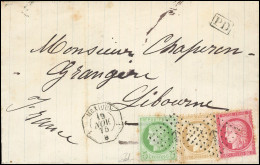 PD
Monsieur Chaperon-
Grangère
Libourne
France
19
NOV
75